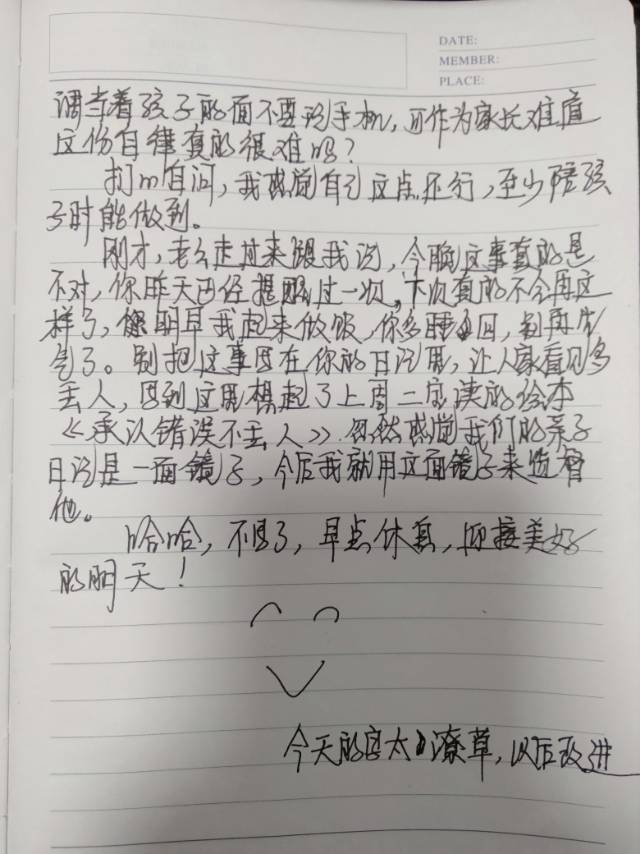 DATE:
MEMBER:
PLACE:
调当着孩子的面不要玩手机，可作为家长难道
这份自律真的很难吗？
扪心自问，我感觉自己这点还行，至少陪孩
子时能做到。
刚才，老公走过来跟我说，今晚这事真的是
不对，你昨天已经提醒过一次，下次真的不会再这
样了，明早我起来做饭，你多睡会回，别再生
气了。别把这事写在你的日记里，让人家看见多
丢人，写到这里想起了上周二宝读的绘本
《承认错误不丢人》忽然感觉我们的亲子
日记是一面镜子，今后我就用这面镜子来监督
他。
哈哈，不写了，早点休息，迎接美好
的明天！
今天的字太潦草，以后改进